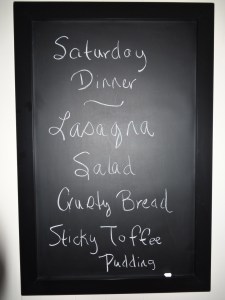 Saturday
Dinner
Lasagna
Salad
Crusty Bread
Sticky Toffee
Pudding